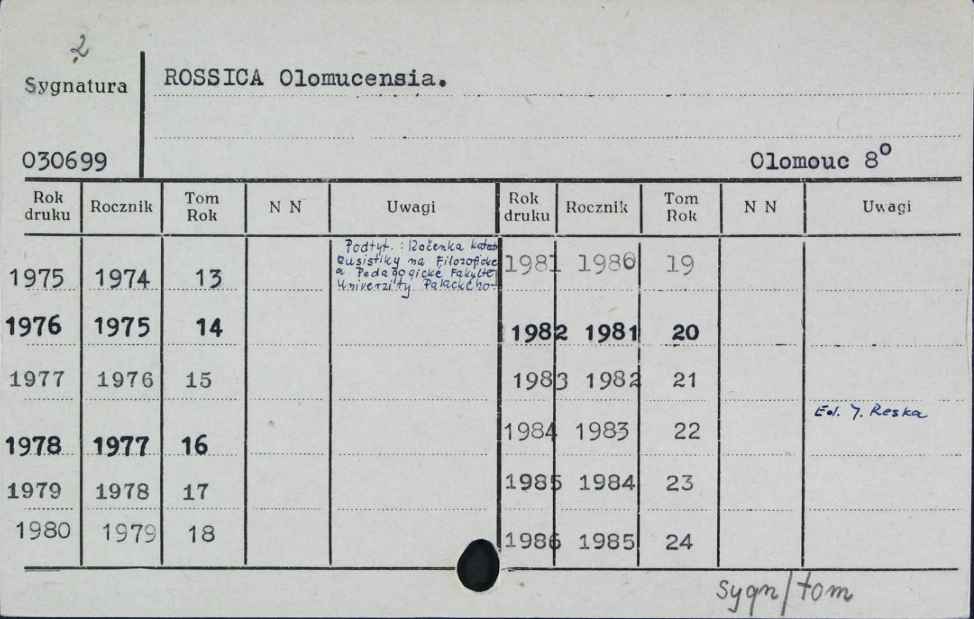 2
Sygnatura
ROSSICA Olomucensia.
030699
Olomouc 8°
Rok druku Rocznik Tom Rok N N Uwagi Rok druku Rocznik Tom Rok N N Uwagi
Podtyt.: Ročenka kated
rusistiky na Filozofické
a Pedagogické Fakultě
Univerzity Palackého-
1975 1974 13 1981 1980 19
1976 1975 14 1982 1981 20
1977 1976 15 1983 1982 21
Ed. J. Reska
1978 1977 16 1984 1983 22
1979 1978 17 1985 1984 23
1980 1979 18 1986 1985 24
sygn/tom